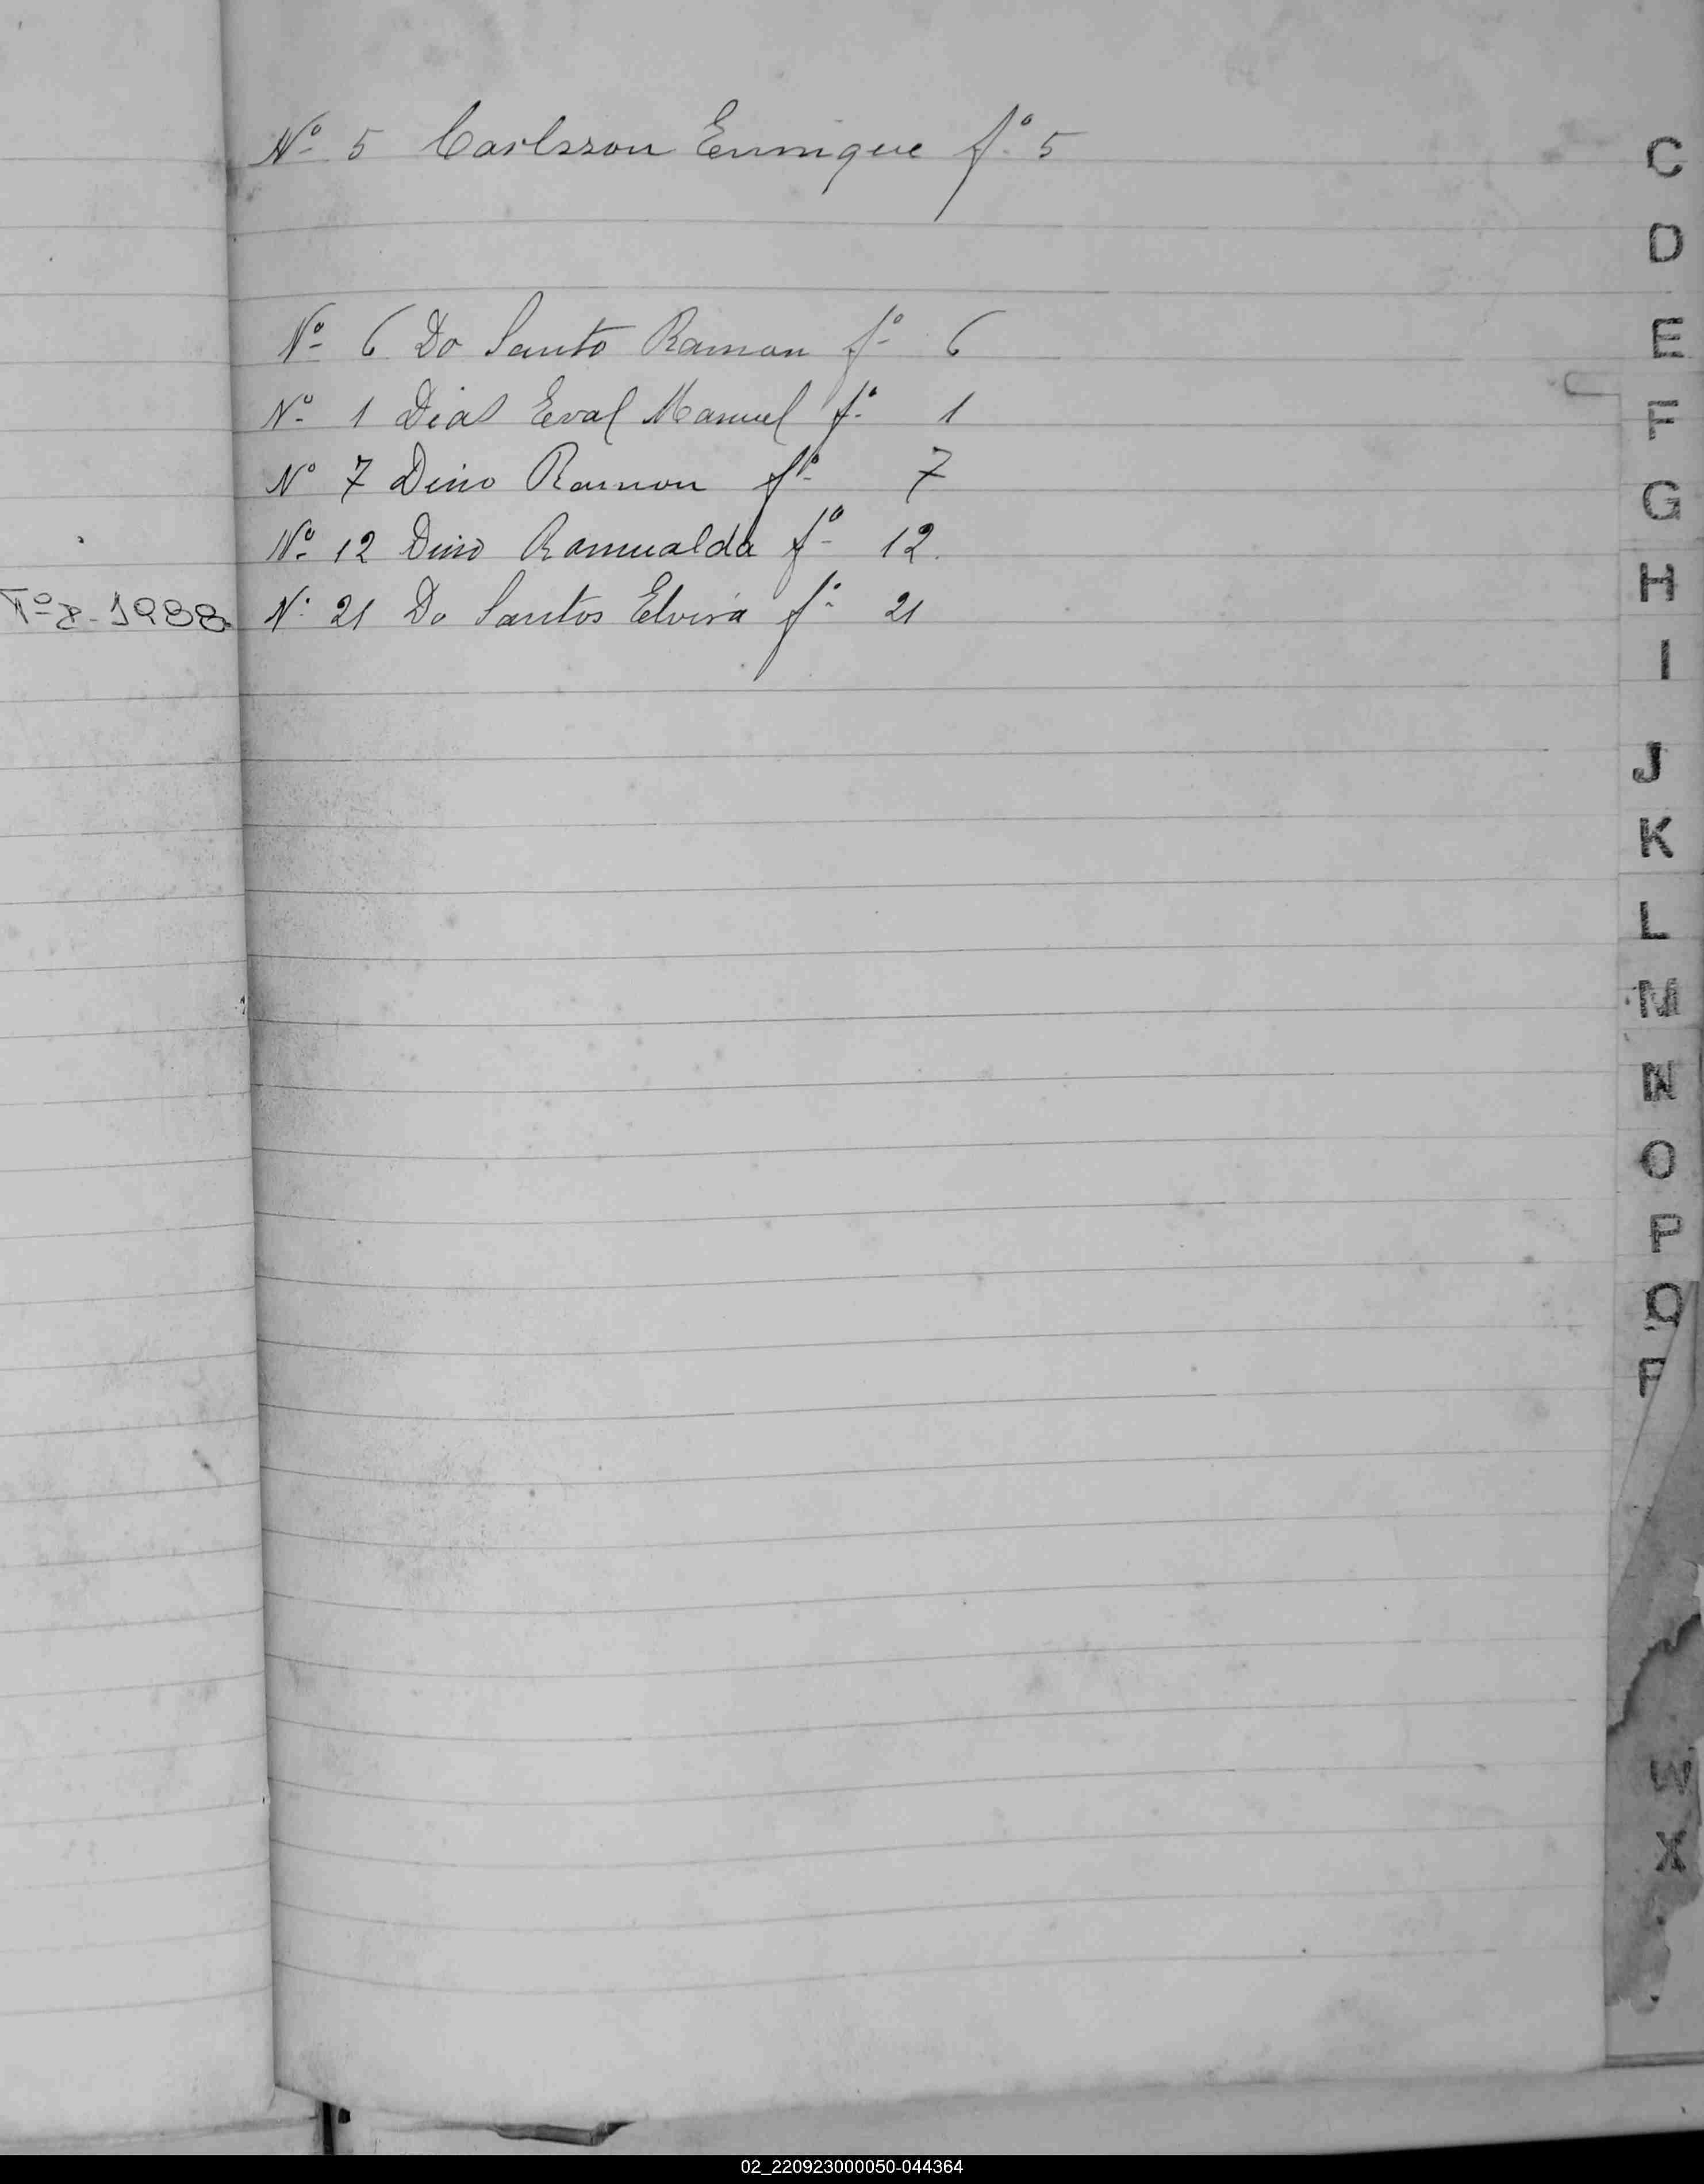 Nº 5 Carlsson Enrrique fº 5
Nº 6 Do Santo Ramon fº 6
Nº 1 Dias Eval Manuel fº 1
Nº 7 Dino Ramon fº 7
Nº 12 Dino Romualda fº 12.
Nº 21 Do Santos Elvira fº 21
1988
C
D
E
F
G
H
I
J
K
L
M
N
O
P
Q
W
X
02_220923000050-044364